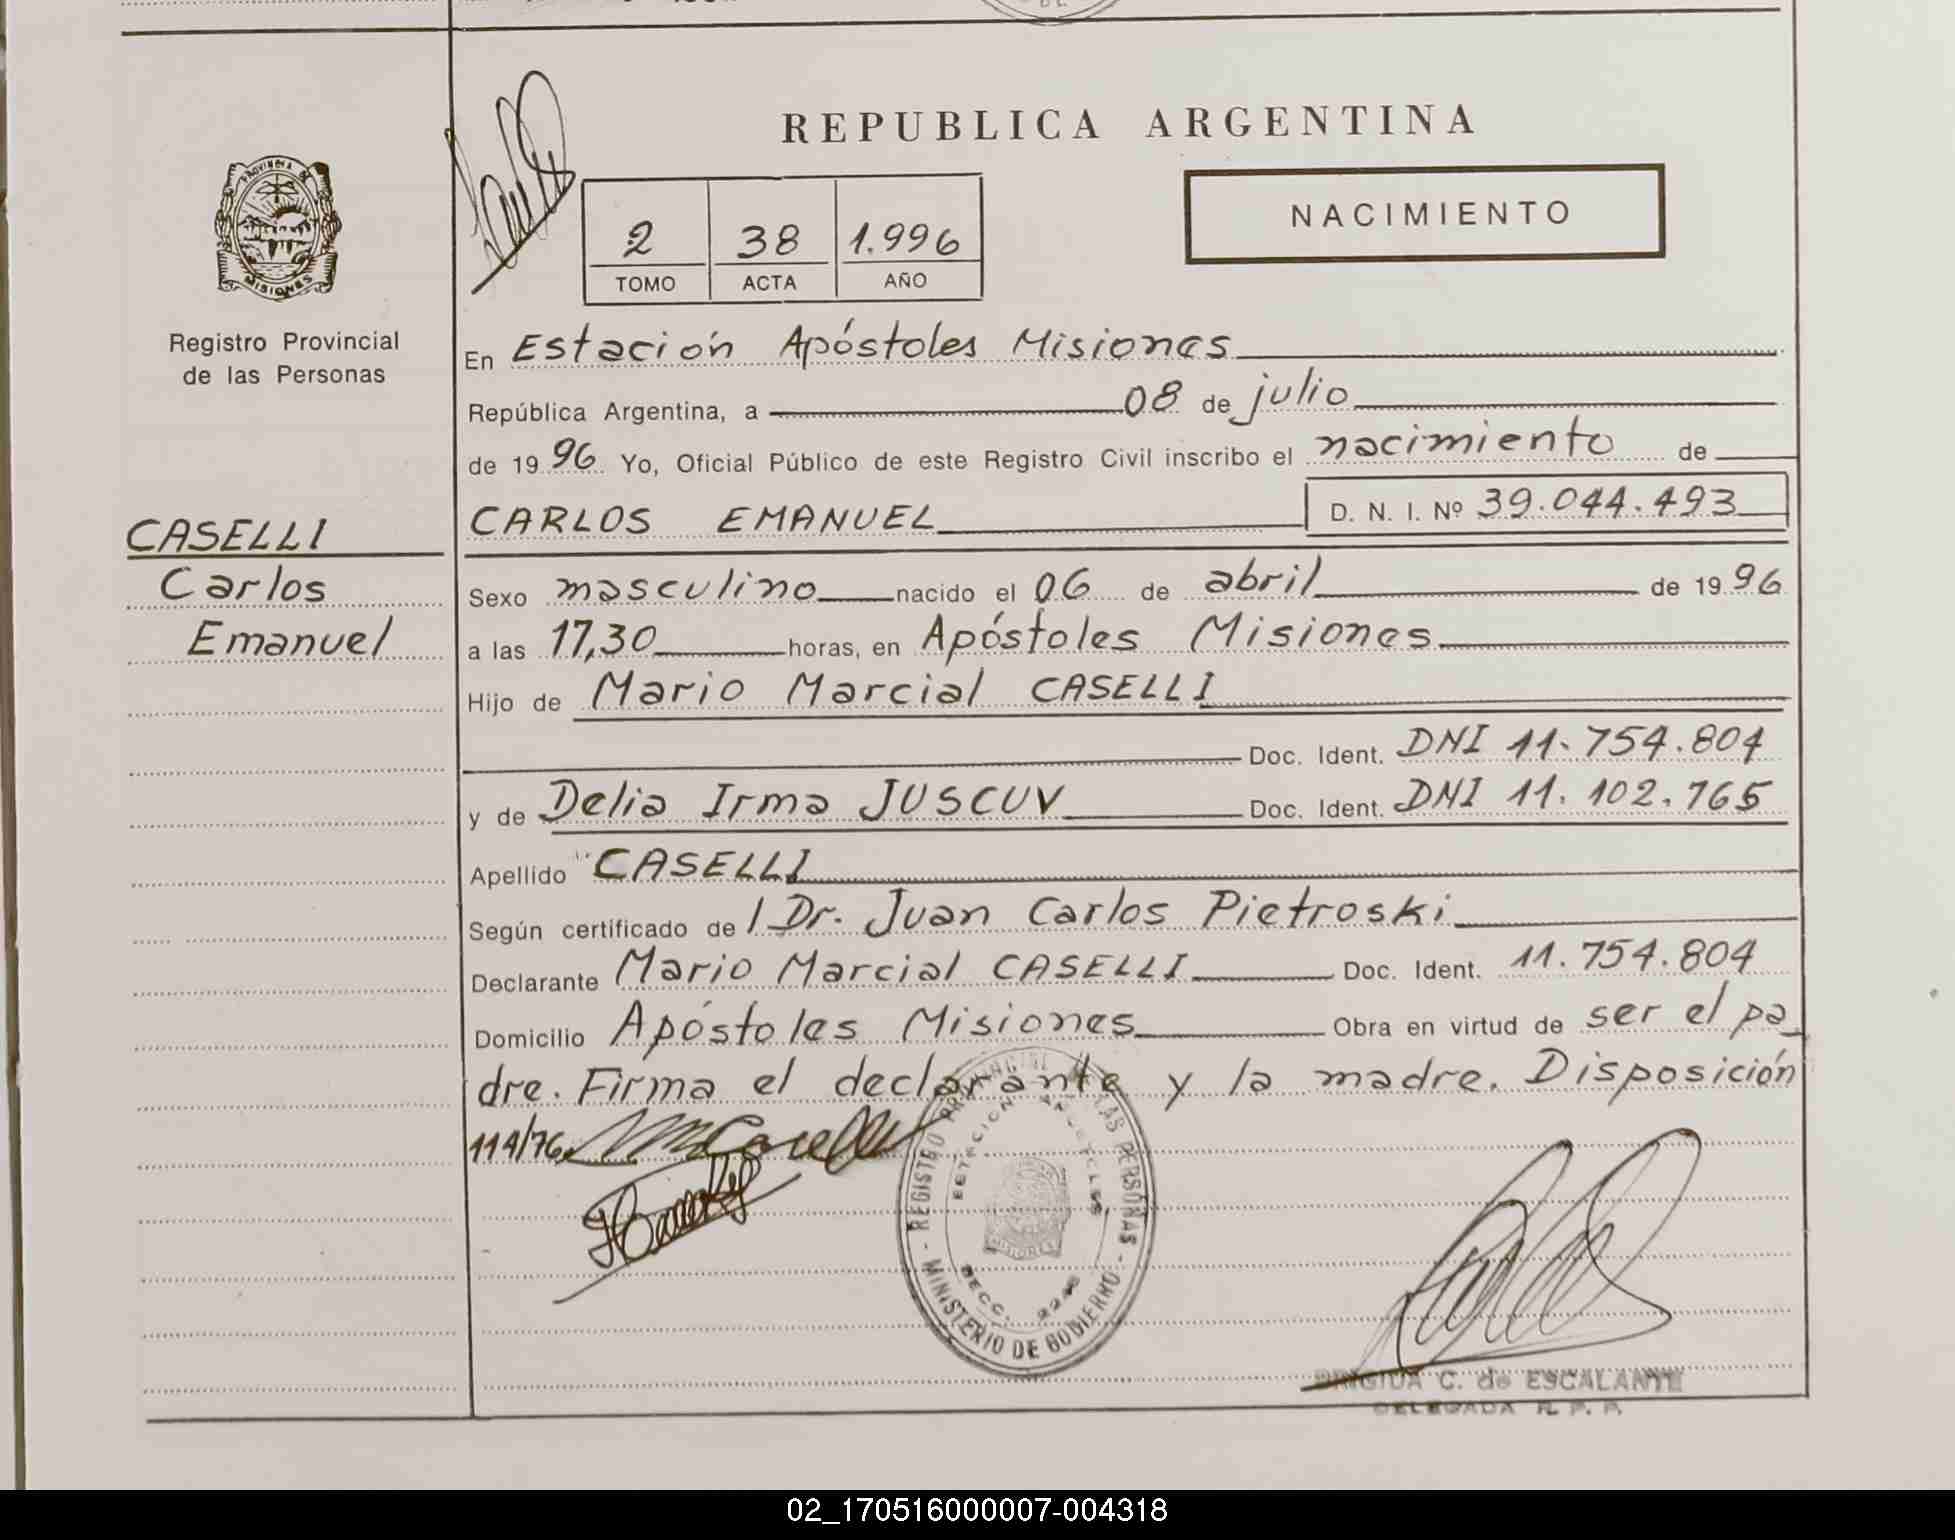 REPUBLICA ARGENTINA
PROVINCIA DE
MISIONES
Registro Provincial
de las Personas
NACIMIENTO
2 38 1.996
TOMO ACTA AÑO
En Estación Apóstoles Misiones
República Argentina, a 08 de julio
de 1996 Yo, Oficial Público de este Registro Civil inscribo el nacimiento de
CARLOS EMANUEL D. N. I. Nº 39.044.493
CASELLI
Carlos
Emanuel
Sexo masculino nacido el 06 de abril de 1996
a las 17,30 horas, en Apóstoles Misiones
Hijo de Mario Marcial CASELLI
Doc. Ident. DNI 11.754.804
y de Delia Irma JUSCUV Doc. Ident. DNI 11.102.765
Apellido CASELLI
Según certificado de l Dr. Juan Carlos Pietroski
Declarante Mario Marcial CASELLI Doc. Ident. 11.754.804
Domicilio Apóstoles Misiones Obra en virtud de ser el pa_
dre. Firma el declarante y la madre. Disposición
114/76.
REGISTRO PROVINCIAL DE LAS PERSONAS
ESTACION APOSTOLES
MISIONES
SECC.
- MINISTERIO DE GOBIERNO -
BRIGIDA C. de ESCALANTE
DELEGADA R. P. P.
02_170516000007-004318